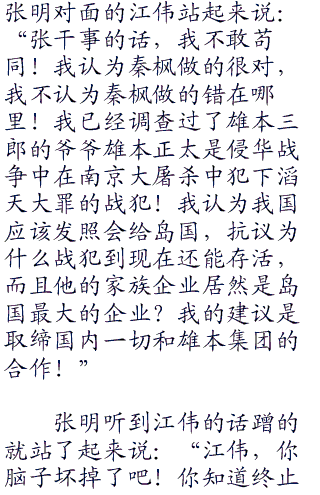 张明对面的江伟站起来说：
“张干事的话，我不敢苟
同！我认为秦枫做的很对，
我不认为秦枫做的错在哪
里！我已经调查过了雄本三
郎的爷爷雄本正太是侵华战
争中在南京大屠杀中犯下滔
天大罪的战犯！我认为我国
应该发照会给岛国，抗议为
什么战犯到现在还能存活，
而且他的家族企业居然是岛
国最大的企业？我的建议是
取缔国内一切和雄本集团的
合作！”
张明听到江伟的话蹭的
就站了起来说：“江伟，你
脑子坏掉了吧！你知道终止